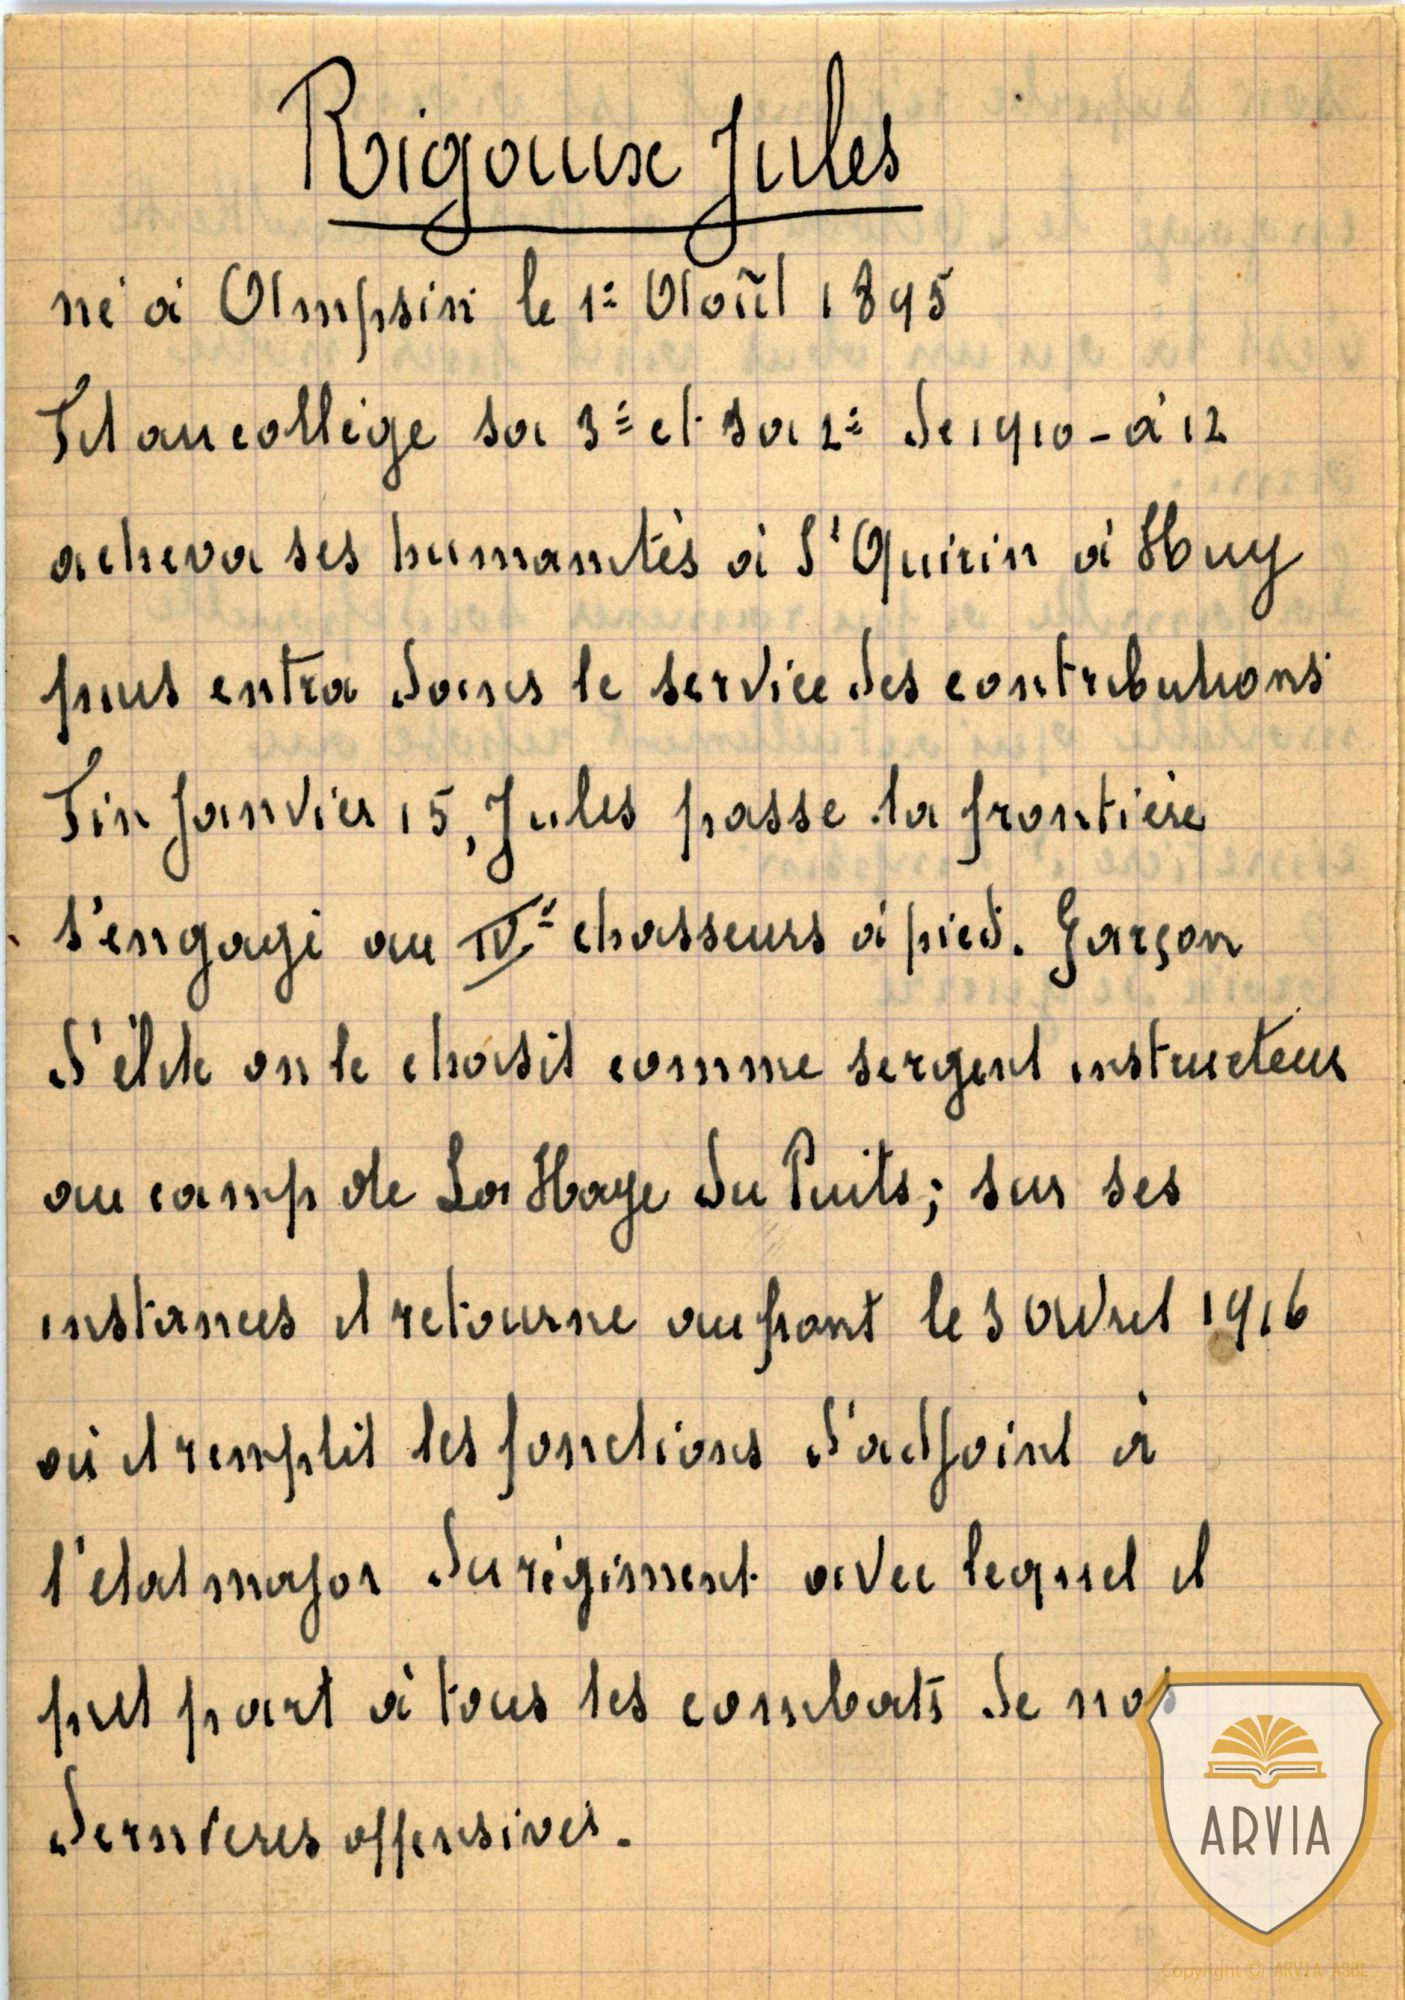 Rigoux Jules
né à Ampsin le 1er Août 1895
Fit au collège sa 3e et sa 2e de 1910 - à 12
acheva ses humanités à St Quirin à Huy
puis entra dans le service des contributions
Fin Janvier 15, Jules passe la frontière
s'engage au IVe chasseurs à pied. Garçon
d'élite on le choisit comme sergent instructeur
au camp de La Haye du Puits; sur ses
instances il retourne au front le 3 avril 1916
où il remplit les fonctions d'adjoint à
l'etat major du régiment avec lequel il
prit part à tous les combats de nos
dernières offensives.
ARVIA
Copyright © ARVIA ASBL